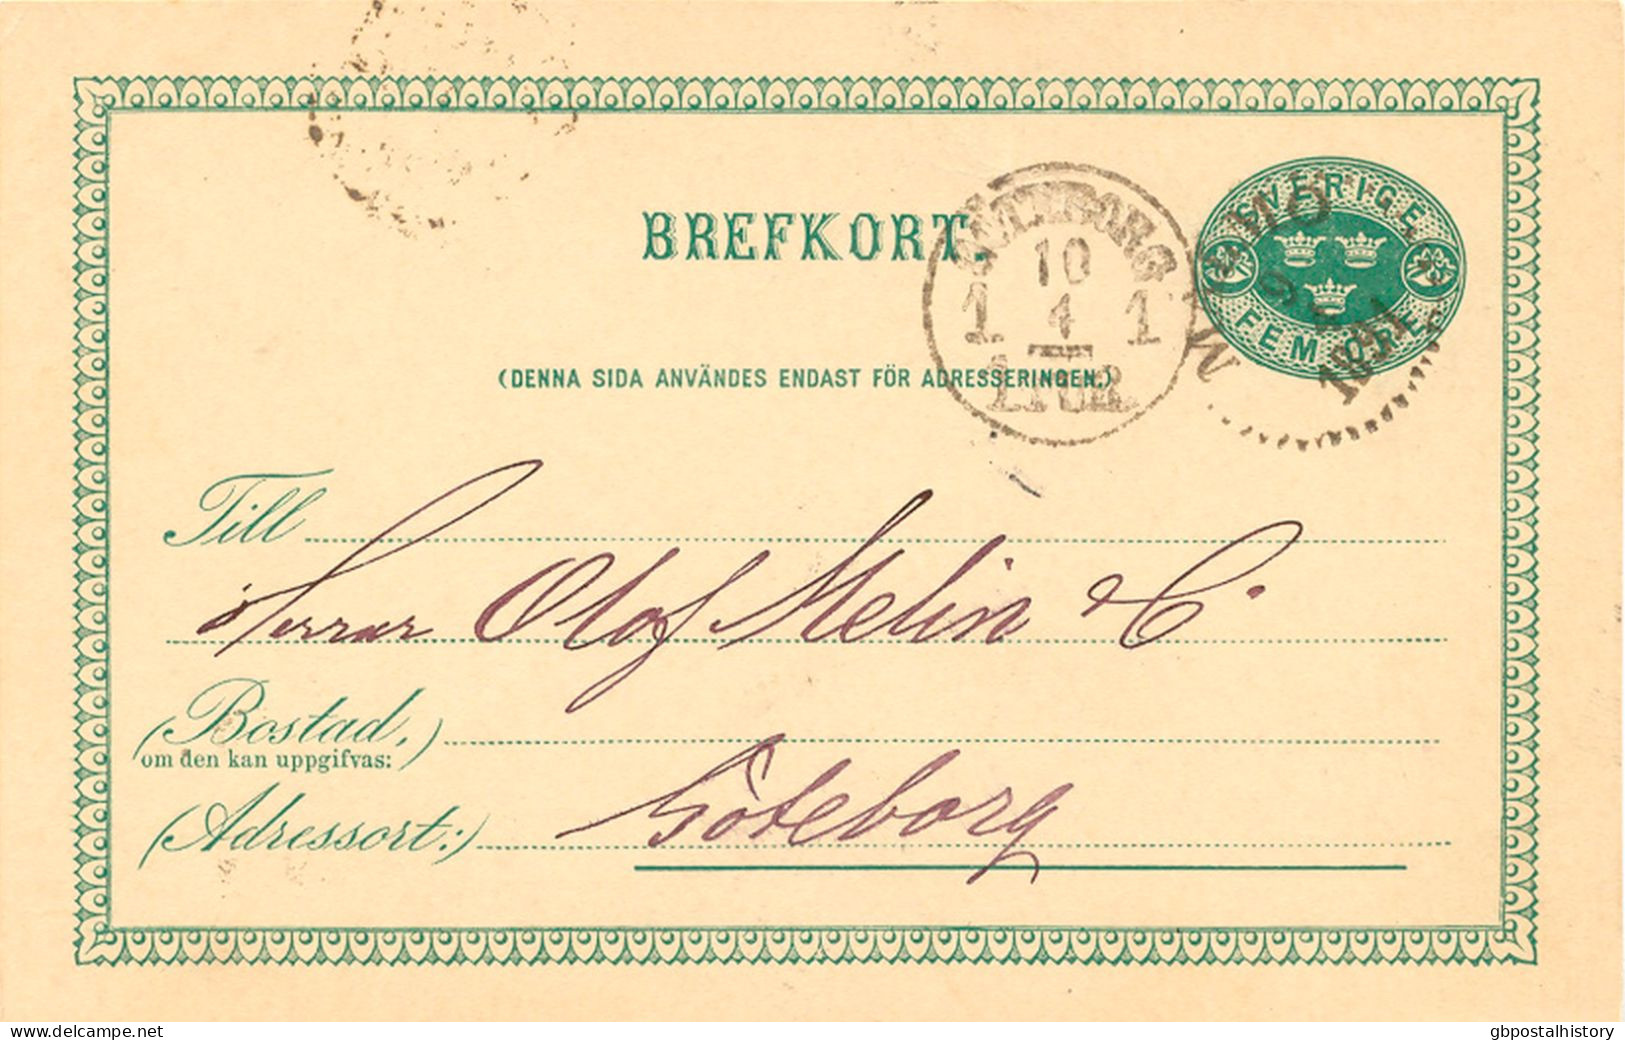 BREFKORT.
SVERIGE
FEM ÖRE
GÖTEBORG
10
1 4 1
1 TUR.
MALMÖ
9
1891
(DENNA SIDA ANVÄNDES ENDAST FÖR ADRESSERINGEN.)
Till
Herrar Olof Melin & C.
(Bostad,)
om den kan uppgifvas:
(Adressort:) Göteborg
www.delcampe.net
gbpostalhistory